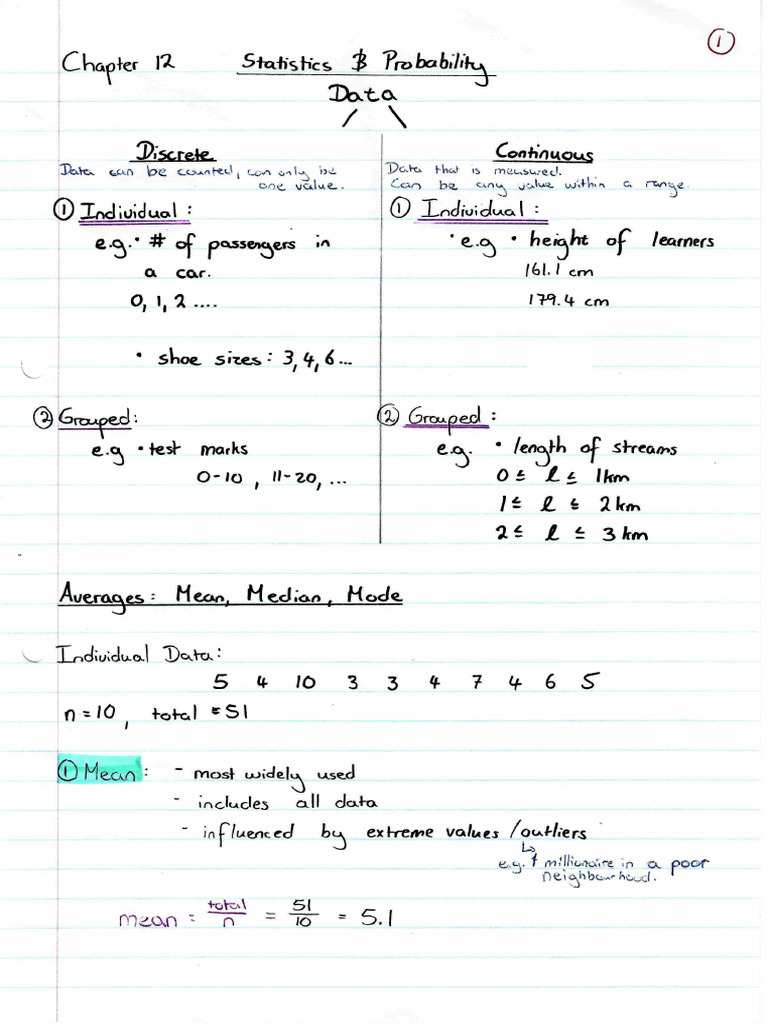 ①
Chapter 12 Statistics & Probability
Data
Discrete
Data can be counted, can only be
one value.
① Individual:
e.g. • # of passengers in
a car.
0, 1, 2 ....
• shoe sizes: 3, 4, 6...
② Grouped:
e.g • test marks
0-10 , 11-20, ...
Continuous
Data that is measured.
Can be any value within a range.
① Individual:
• e.g • height of learners
161.1 cm
179.4 cm
② Grouped:
e.g. • length of streams
0 ≤ l ≤ 1km
1 ≤ l ≤ 2km
2 ≤ l ≤ 3km
Averages: Mean, Median, Mode
Individual Data:
5 4 10 3 3 4 7 4 6 5
n = 10, total = 51
① Mean: - most widely used
- includes all data
- influenced by extreme values / outliers
↳
e.g. millionaire in a poor
neighbourhood.
mean = total/n = 51/10 = 5.1